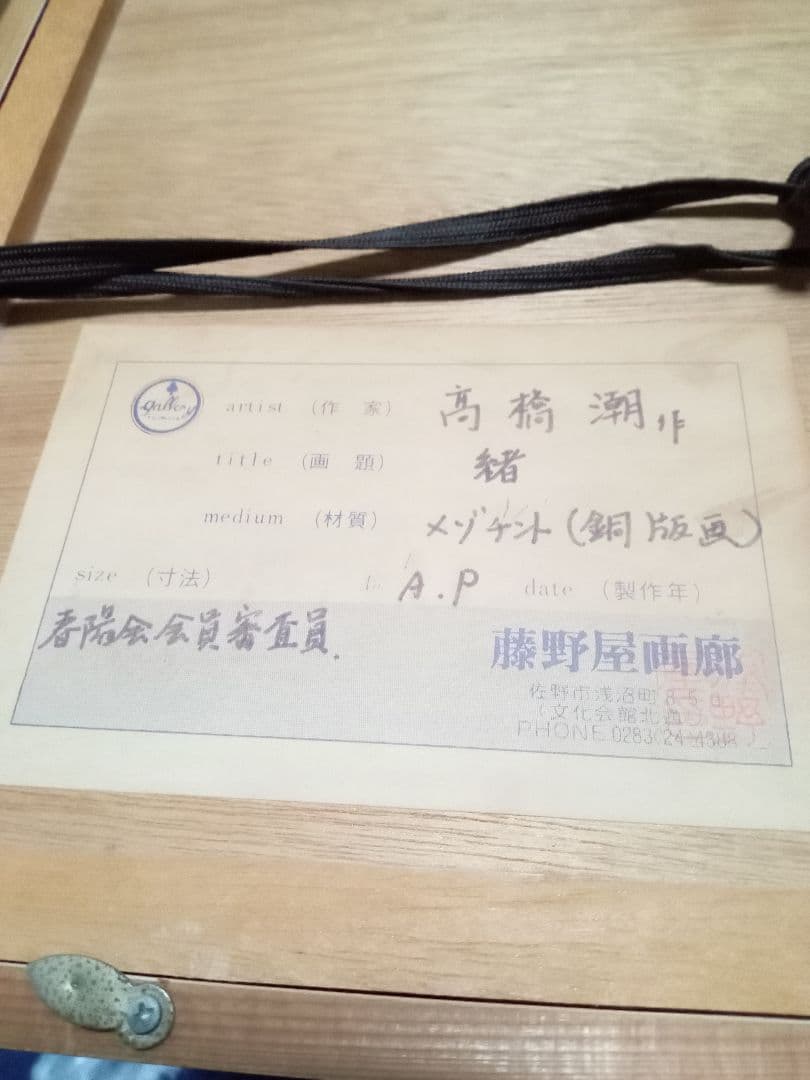 gallery
artist （作　家） 高橋 潮 作
title （画　題） 緒
medium （材質） メゾチント（銅版画）
size （寸法） A.P date （製作年）
春陽会会員審査員.
藤野屋画廊
佐野市浅沼町
（文化会館北
PHONE 0283(24